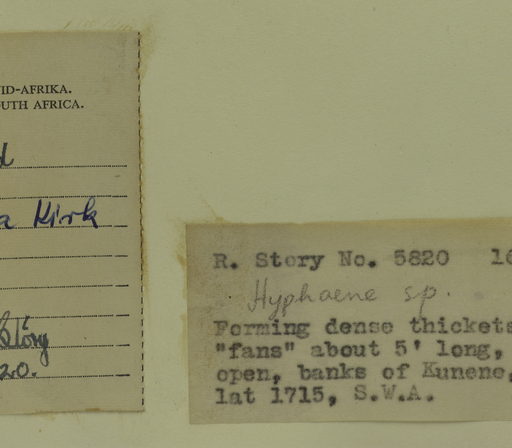 ID-AFRIKA.
UTH AFRICA.
a Kirk
Story
20.
R. Story No. 5820 16
Hyphaene sp.
Forming dense thickets
"fans" about 5' long,
open, banks of Kunene,
lat 1715, S.W.A.